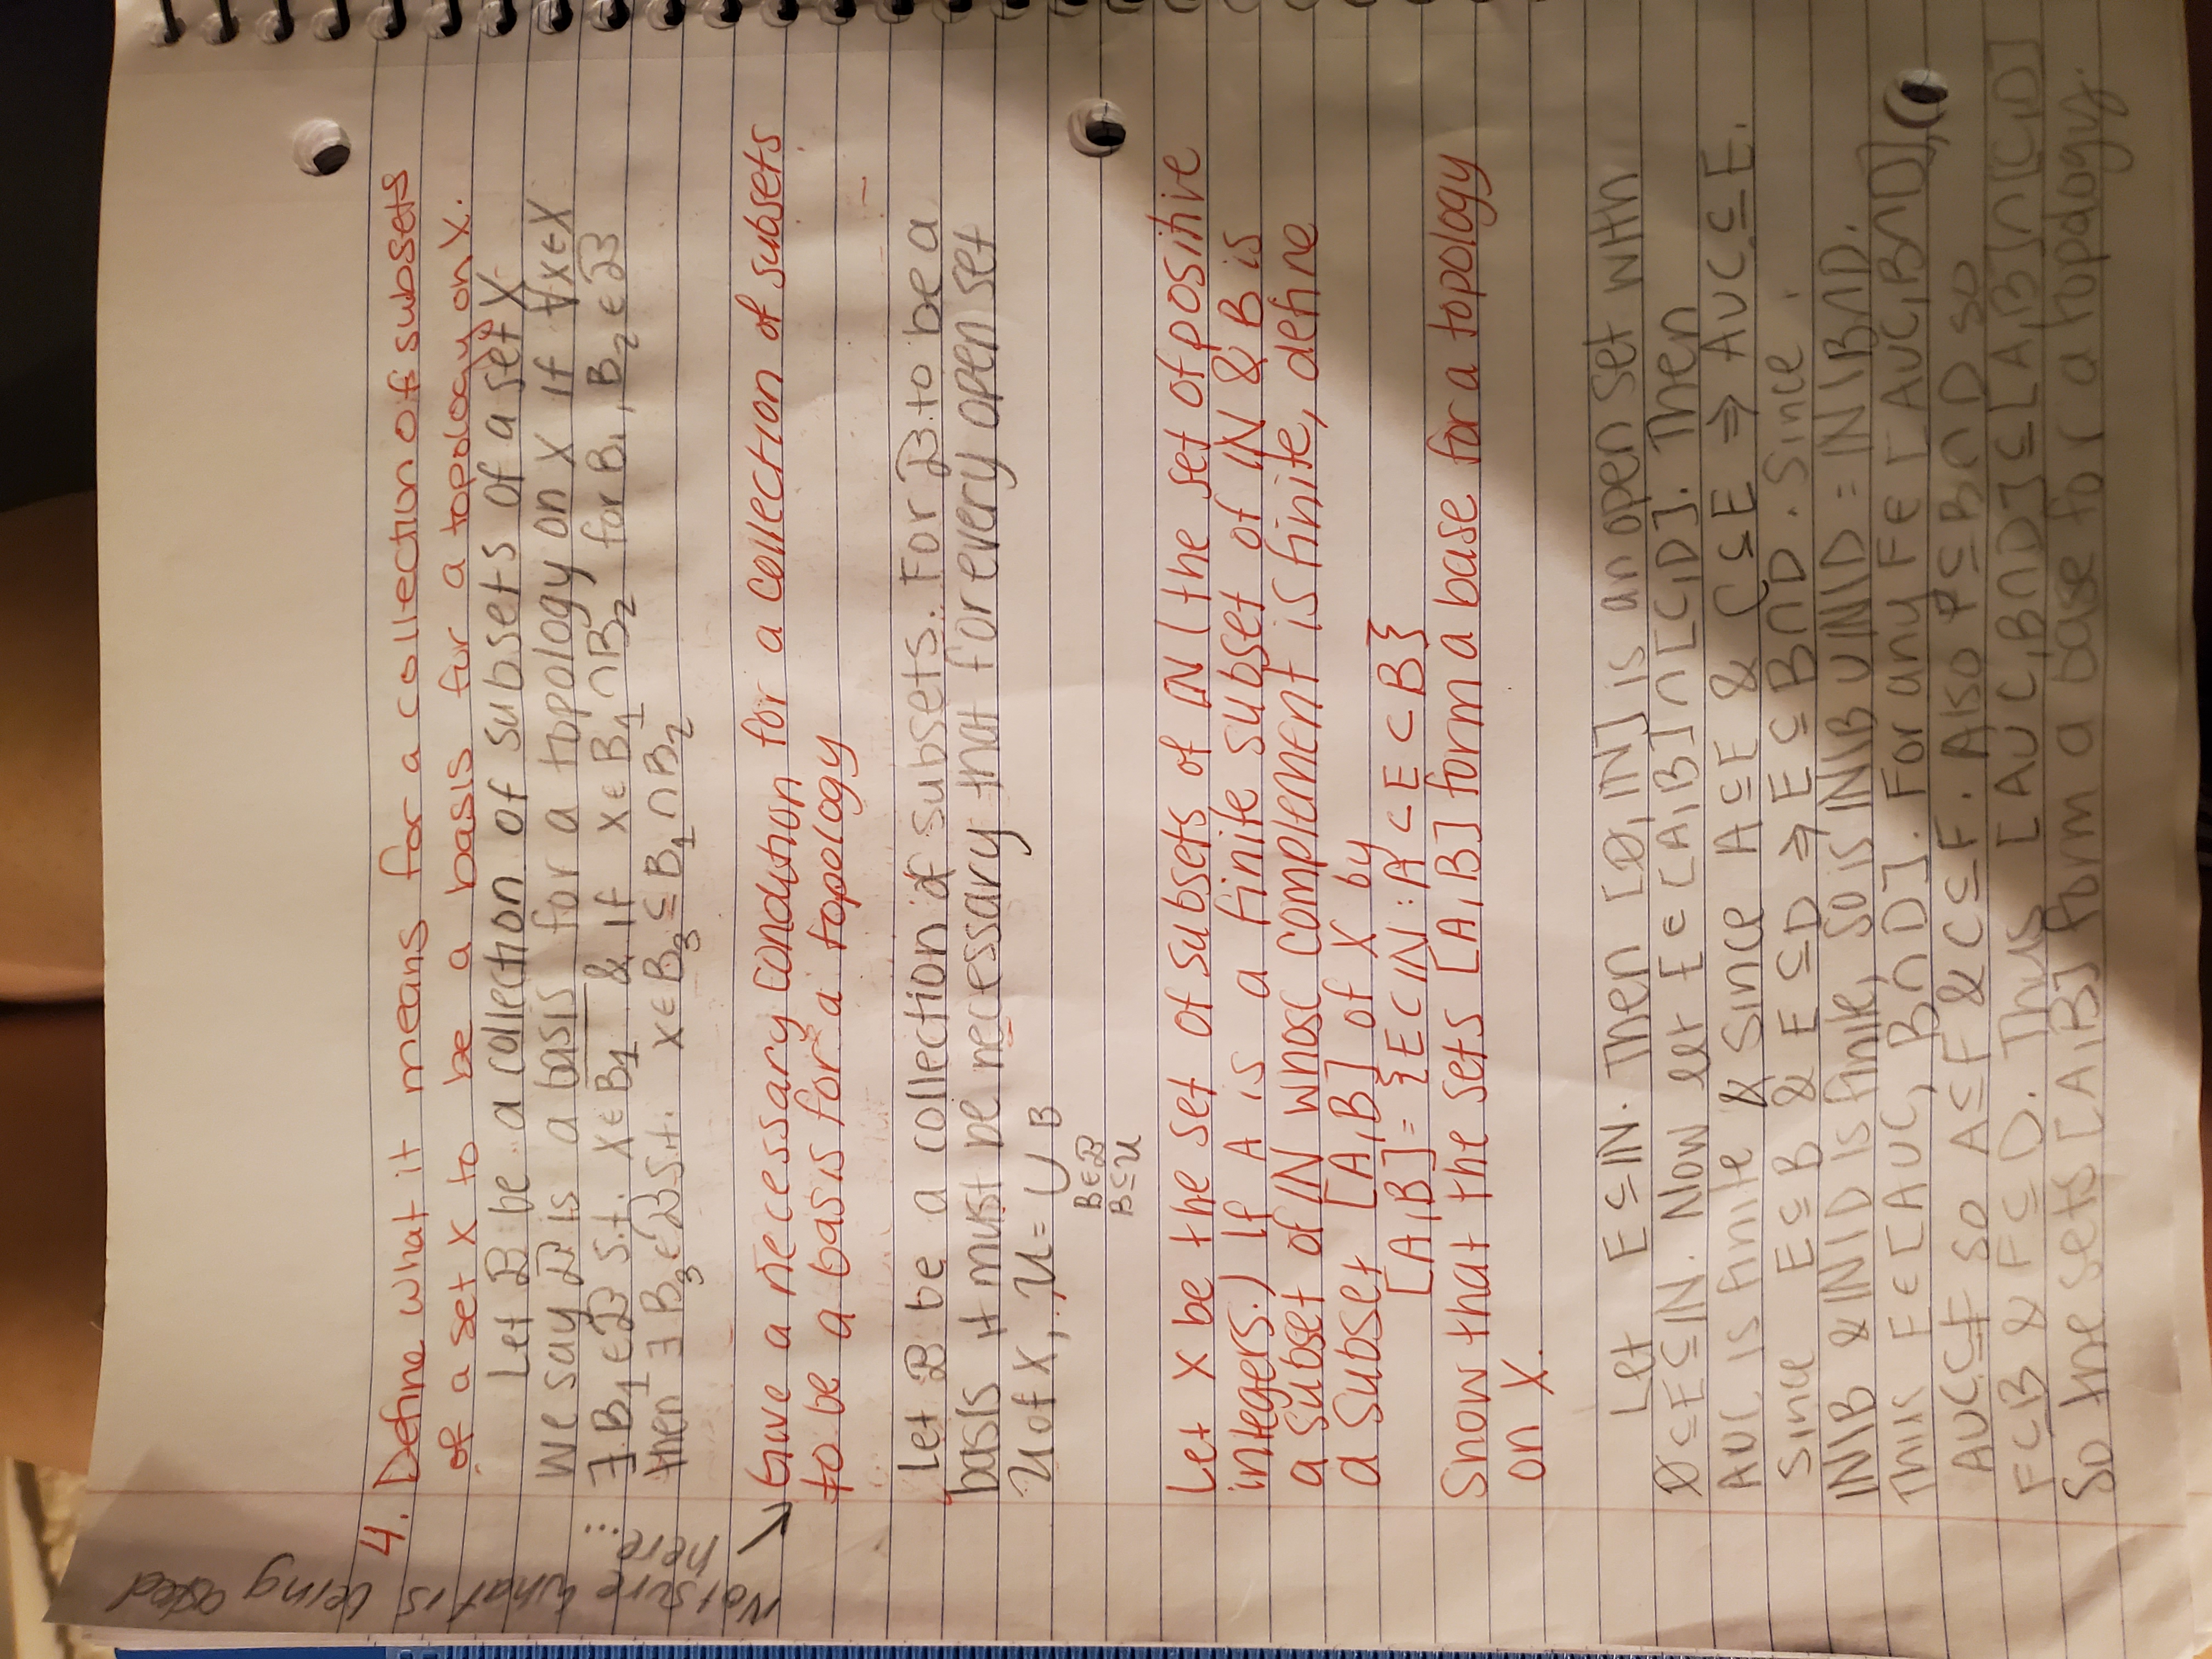 Not sure what is being asked
here...
4. Define what it means for a collection of subsets
of a set X to be a basis for a topology on X.
Let ℬ be a collection of subsets of a set X.
We say ℬ is a basis for a topology on X if ∀x∈X
∃B₁∈ℬ s.t. x∈B₁ & if x∈B₁∩B₂ for B₁, B₂∈ℬ
then ∃B₃∈ℬ s.t. x∈B₃⊆B₁∩B₂
Give a necessary condition for a collection of subsets
to be a basis for a topology
Let ℬ be a collection of subsets. For ℬ to be a
basis it must be necessary that for every open set
U of X, U = ∪ B
B∈ℬ
B⊆U
Let X be the set of subsets of ℕ (the set of positive
integers.) If A is a finite subset of ℕ & B is
a subset of ℕ whose complement is finite, define
a subset [A,B] of X by
[A,B]={E⊂ℕ: A⊂E⊂B}
Show that the sets [A,B] form a base for a topology
on X.
Let E⊆ℕ. Then [∅,ℕ] is an open set with
∅⊆E⊆ℕ. Now let E∈[A,B]∩[C,D]. Then
A∪C is finite & since A⊆E & C⊆E ⇒ A∪C⊆E.
Since E⊆B & E⊆D ⇒ E⊆B∩D. Since
ℕ\B & ℕ\D is finite, so is ℕ\B∪ℕ\D = ℕ\B∩D.
Thus E∈[A∪C, B∩D]. For any F∈[A∪C, B∩D],
A∪C⊆F so A⊆F & C⊆F. Also F⊆B∩D so
F⊆B & F⊆D. Thus [A∪C, B∩D]⊆[A,B]∩[C,D]
So the sets [A,B] form a base for a topology.